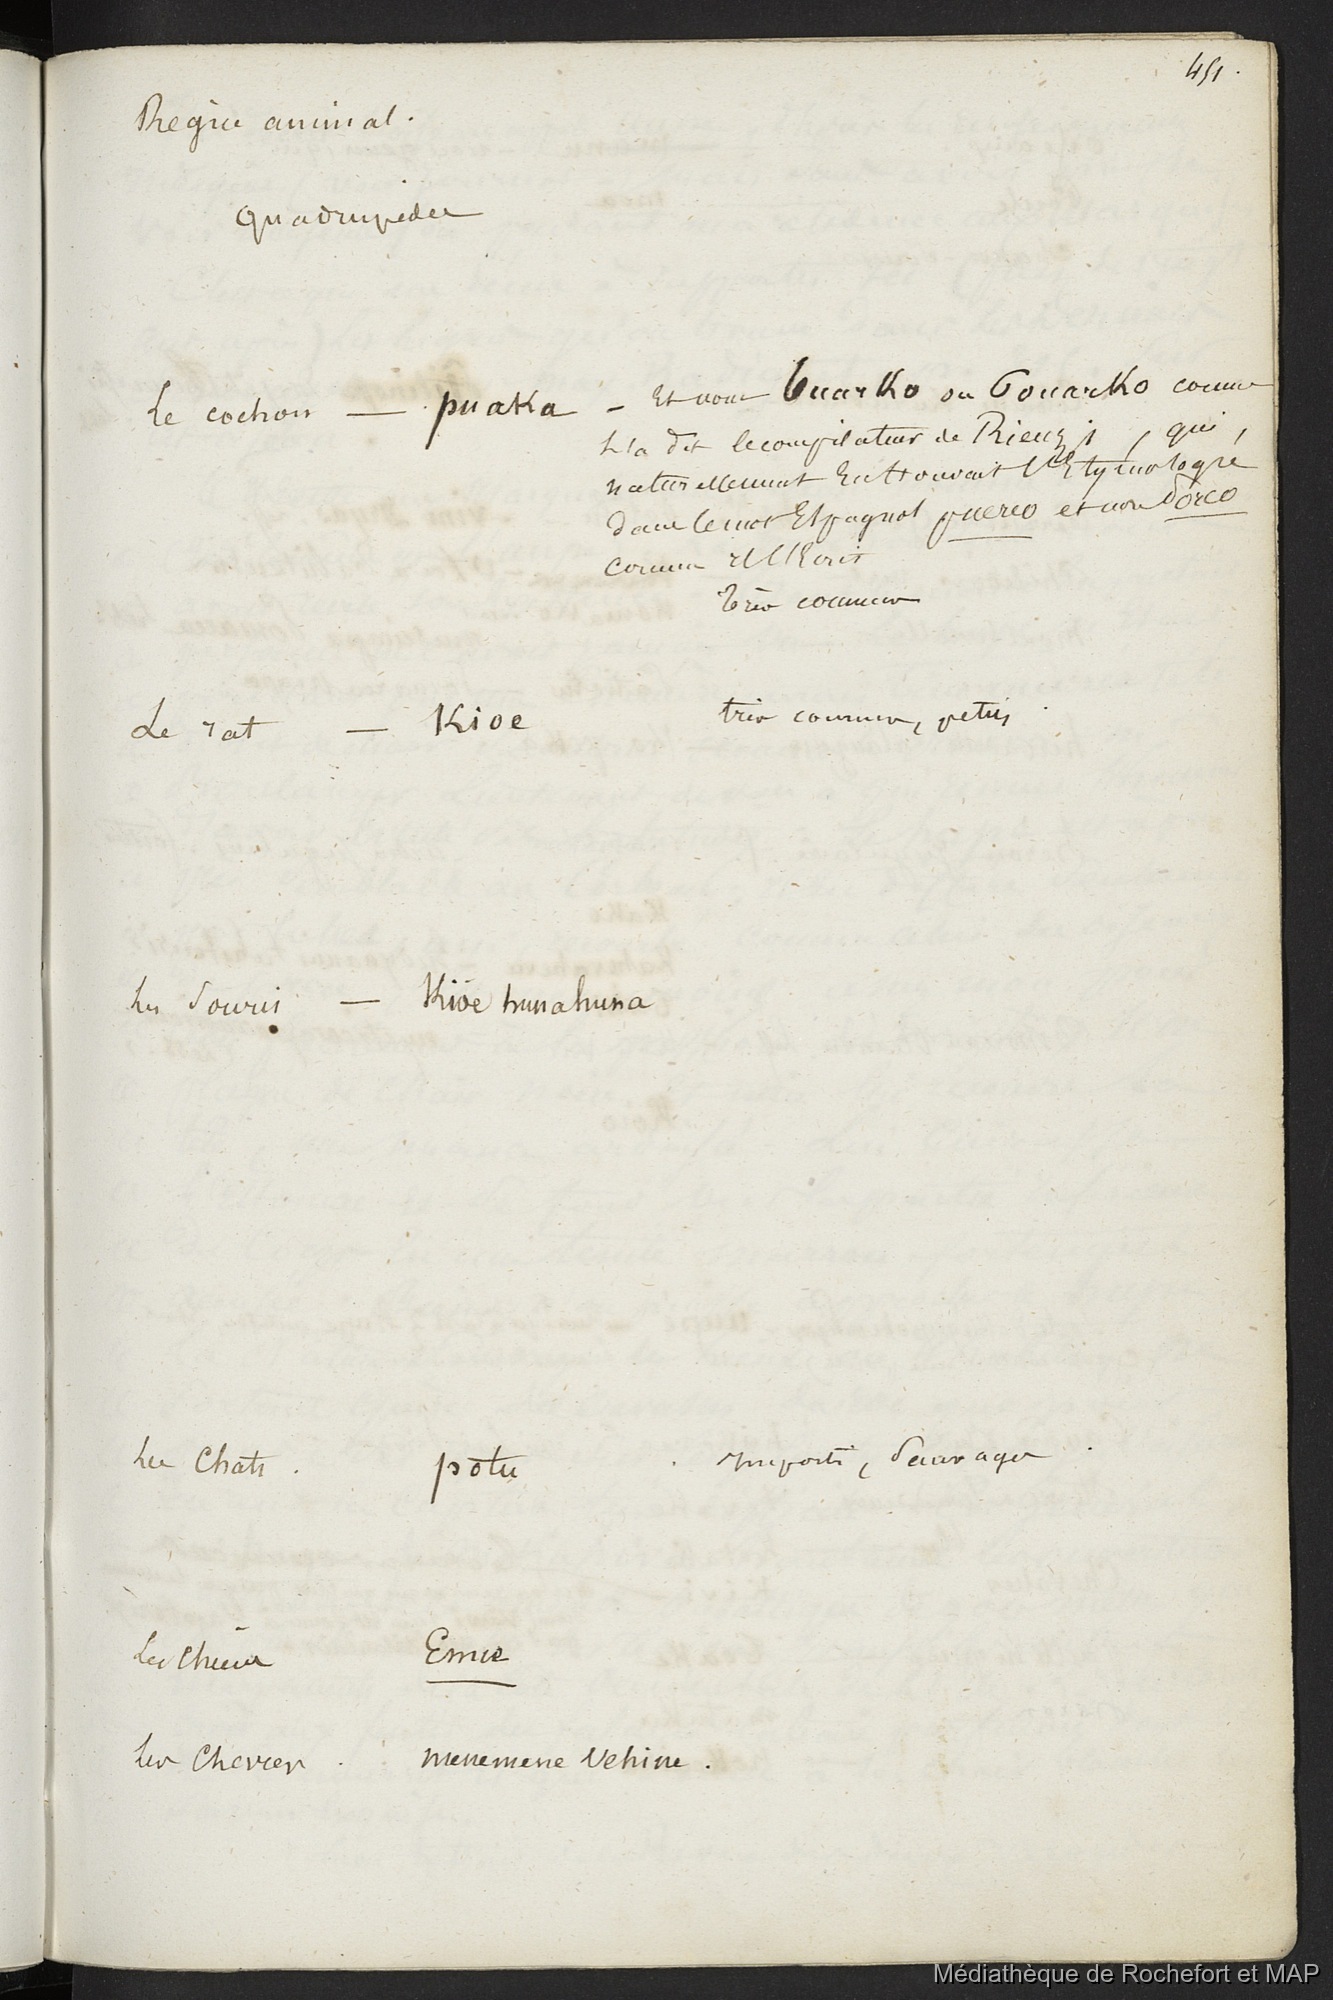 451.
Règne animal.
Quadrupèdes
Le cochon — puaka – Et non Buarko ou Bouarko comme
l'a dit le compilateur de Rienzi, qui,
naturellement En trouvait l'Etymologie
dans le mot Espagnol puerco et non Porco
comme il l'Ecrit
très commun
Le rat — Kioe très commun, petits.
Les Souris — Kioe hunahuna
Les Chats. potu importés, Sauvages.
Les Chiens Enue
Les Chevres. menemene Vehine.
Médiathèque de Rochefort et MAP